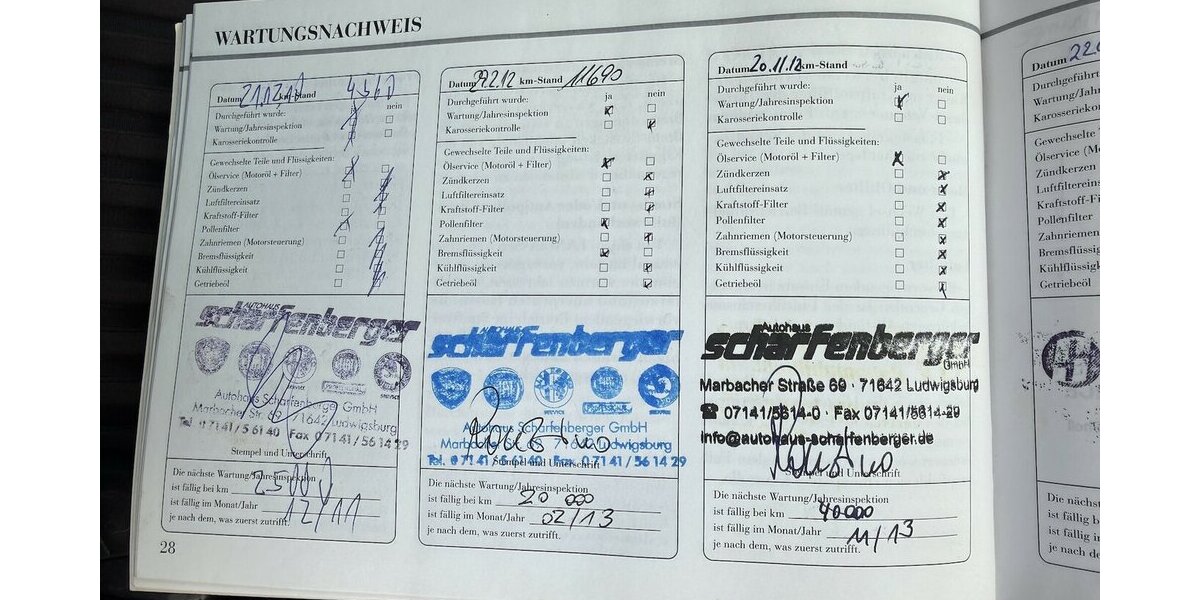 WARTUNGSNACHWEIS
Datum km-Stand
Durchgeführt wurde: ja nein
Wartung/Jahresinspektion
Karosseriekontrolle
Gewechselte Teile und Flüssigkeiten:
Ölservice (Motoröl + Filter)
Zündkerzen
Luftfiltereinsatz
Kraftstoff-Filter
Pollenfilter
Zahnriemen (Motorsteuerung)
Bremsflüssigkeit
Kühlflüssigkeit
Getriebeöl
AUTOHAUS
scharffenberger
SERVICE
Autohaus Scharffenberger GmbH
Marbacher Str. 69, 71642 Ludwigsburg
Tel. 07141/56140 Fax 07141/561429
Stempel und Unterschrift
Die nächste Wartung/Jahresinspektion
ist fällig bei km 25000
ist fällig im Monat/Jahr 12/11
je nach dem, was zuerst zutrifft.
28
Datum km-Stand 11690
Durchgeführt wurde: ja nein
Wartung/Jahresinspektion
Karosseriekontrolle
Gewechselte Teile und Flüssigkeiten:
Ölservice (Motoröl + Filter)
Zündkerzen
Luftfiltereinsatz
Kraftstoff-Filter
Pollenfilter
Zahnriemen (Motorsteuerung)
Bremsflüssigkeit
Kühlflüssigkeit
Getriebeöl
AUTOHAUS
scharffenberger
SERVICE
Autohaus Scharffenberger GmbH
Marbacher Str. 69, 71642 Ludwigsburg
Tel. 07141/56140 Fax 07141/561429
Stempel und Unterschrift
Die nächste Wartung/Jahresinspektion
ist fällig bei km 20 000
ist fällig im Monat/Jahr 02/13
je nach dem, was zuerst zutrifft.
Datum 20.11.12 km-Stand
Durchgeführt wurde: ja nein
Wartung/Jahresinspektion
Karosseriekontrolle
Gewechselte Teile und Flüssigkeiten:
Ölservice (Motoröl + Filter)
Zündkerzen
Luftfiltereinsatz
Kraftstoff-Filter
Pollenfilter
Zahnriemen (Motorsteuerung)
Bremsflüssigkeit
Kühlflüssigkeit
Getriebeöl
Autohaus
scharffenberger
GmbH
Marbacher Straße 69 · 71642 Ludwigsburg
☎ 07141/5614-0 · Fax 07141/5614-29
info@autohaus-scharffenberger.de
Stempel und Unterschrift
Die nächste Wartung/Jahresinspektion
ist fällig bei km 40000
ist fällig im Monat/Jahr 11/13
je nach dem, was zuerst zutrifft.
Datum
Durchgeführt
Wartung/Jahr
Karosseriekont
Gewechselte
Ölservice (Mo
Zündkerzen
Luftfiltereins
Kraftstoff-Fi
Pollenfilter
Zahnriemen
Bremsflüssig
Kühlflüssigk
Getriebeöl
Die nächste
ist fällig b
ist fällig im
je nach dem